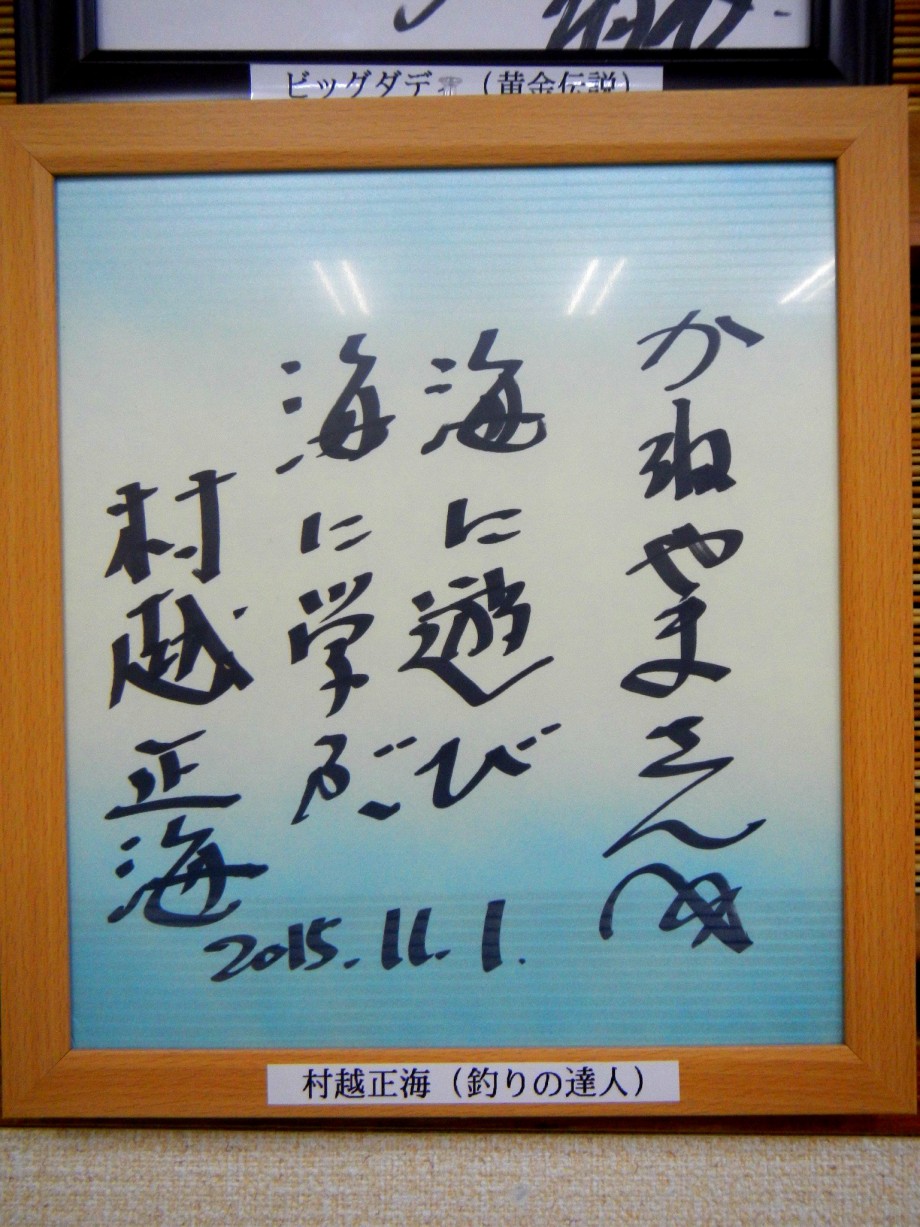 ビッグダディ（黄金伝説）
かねやまさん江
海に遊び
海に学ぶ
村越正海
2015.11.1.
村越正海（釣りの達人）